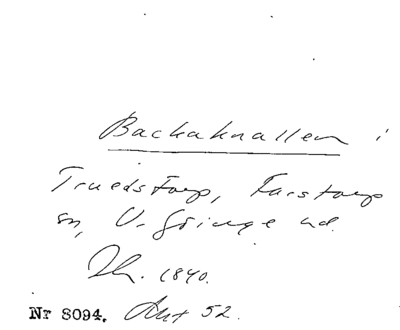 Backaknallen i
Truedstorp, Farstorp
sn, V. Göinge hd.
Th. 1840.
Nr 8094. Akt 52.